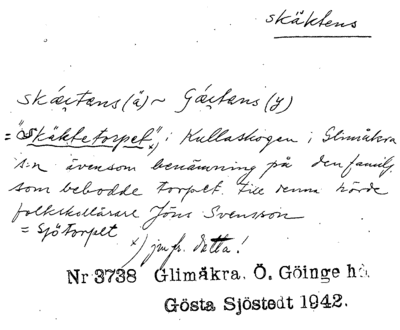 skäktens
skáctans (ä) ~ Gáctans (y)
= "Skäktetorpet" x) i Kullaskogen i Glimåkra
s:n ävensom benämning på den familj
som bebodde torpet. Till denna hörde
folkskollärare Jöns Svensson
= Sjötorpet
x) jmfr. detta!
Nr 3738 Glimåkra. Ö. Göinge hd.
Gösta Sjöstedt 1942.